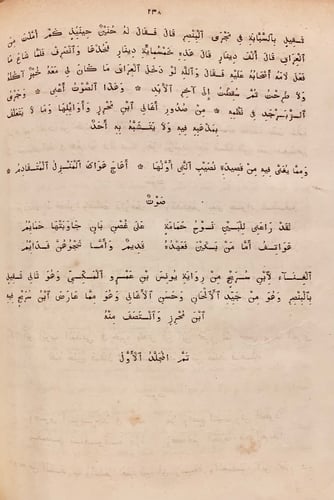 ٢٣٨
ثقيل بالسبّابة فى مجرى البنصر قال فقال له حُنَيْن حينئذٍ كم أمّلت من
العراق قال ألف دينار قال هذه خمسمائة دينار فخذها وانصرف فلمّا شاع ما
فعل لامه أصحابه عليه فقال والله لو دخل العراق ما كان لى معه خبز آكله
ولا طرحت ثم سقطت إلى آخر الأبد * وهذا الصوت أعنى * وحَرَى
الزبرجد فى نظمه * من صدور أغانى ابن محرز وأوايلها وما لا يتعلّق
بمذهبه فيه ولا يتشبّه به أحد
وممّا يغنّى فيه من قصيدة نصيب التى أوّلها * أهاج هواك المنزل المتقادم *
صوت
لقد راعنى للبين نوح حمامة على غصن بان جاوبتها حمايم
هواتف أمّا من بكين فعهده قديم وأمّا شجوهنّ فدايم
الغناء لابن سريج من رواية يونس بن عمرو المكّى وهو ثانى ثقيل
بالبنصر وهو من جيّد الألحان وحسن الأغانى وهو ممّا عارض ابن سريج فيه
ابن محرز وانتصف منه
تم المجلّد الأوّل